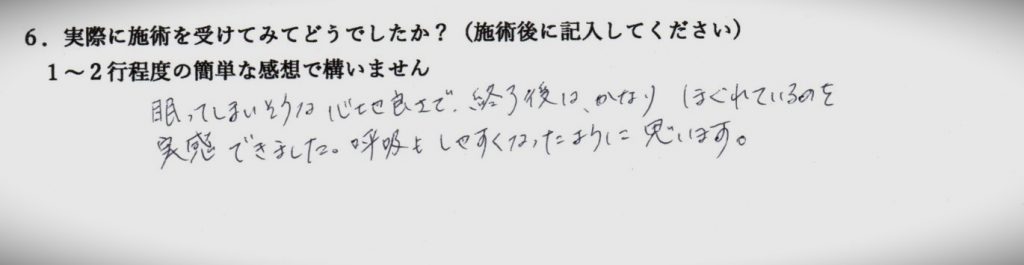 6．実際に施術を受けてみてどうでしたか？（施術後に記入してください）
1～2行程度の簡単な感想で構いません
眠ってしまいそうな心地良さで、終了後は、かなり ほぐれているのを
実感できました。呼吸もしやすくなったように思います。